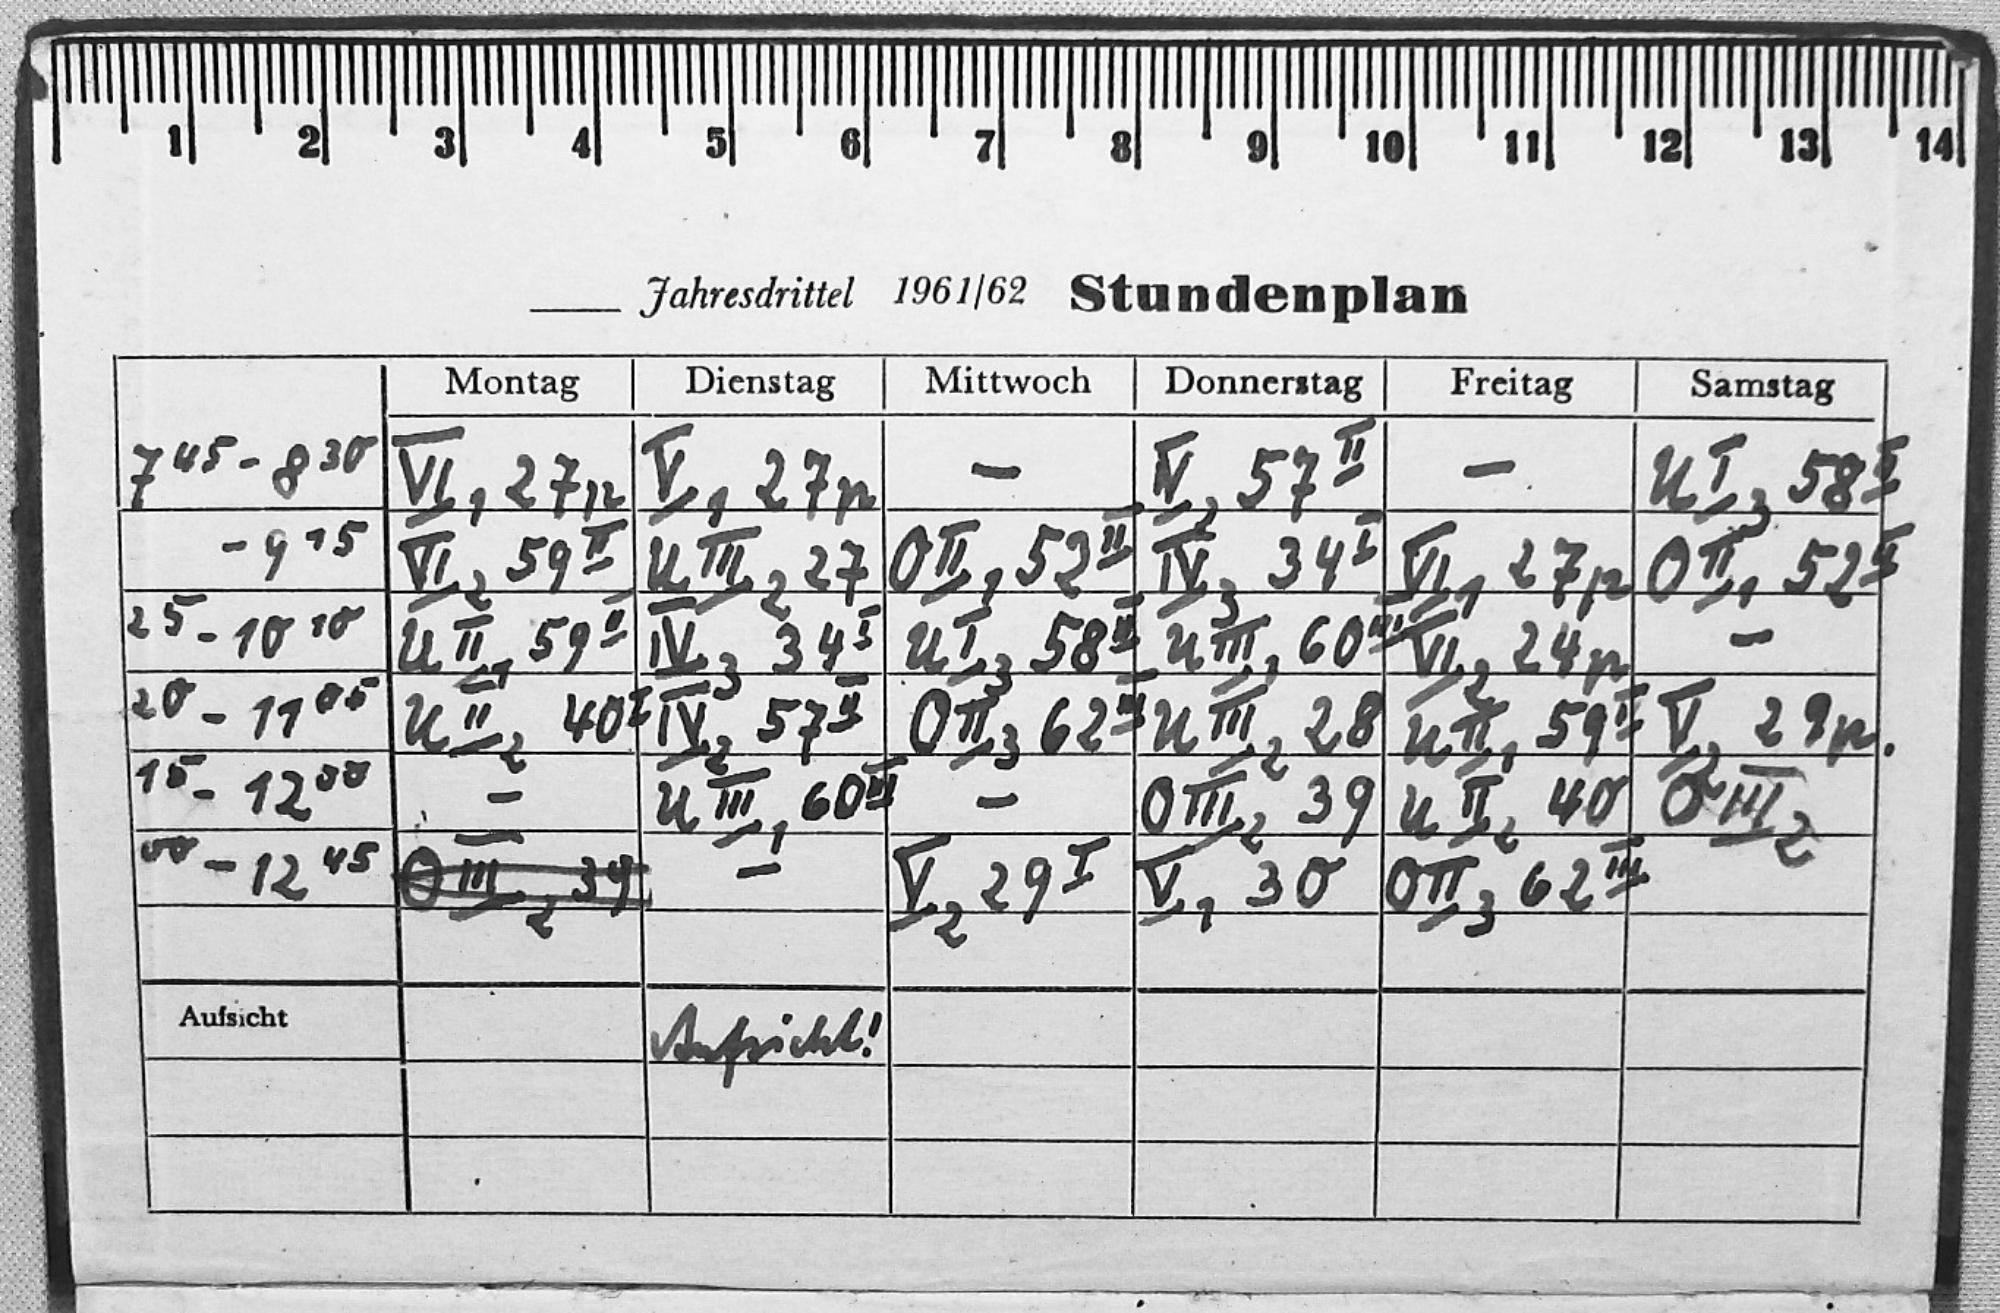 1 2 3 4 5 6 7 8 9 10 11 12 13 14
Jahresdrittel 1961/62 Stundenplan
Montag Dienstag Mittwoch Donnerstag Freitag Samstag
7 45 - 8 30 VI, 1 27p V, 1 27p – IV, 2 57 II – U I, 3 58 II
- 9 15 VI, 2 59 II U III, 2 27 O II, 1 52 II IV, 3 34 I VI, 1 27p O II, 1 52 II
25 - 10 10 U II, 1 59 II IV, 3 34 I U I, 3 58 II U III, 1 60 III VI, 2 24p –
20 - 11 05 U II, 2 40 I IV, 2 57 II O II, 3 62 III U III, 2 28 U II, 1 59 II V, 2 29p.
15 - 12 00 – U III, 1 60 III – O III, 2 39 U II, 2 40 O III, 2
00 - 12 45 O III, 2 39 – V, 2 29 I V, 1 30 O II, 3 62 III
Aufsicht Aufsicht!